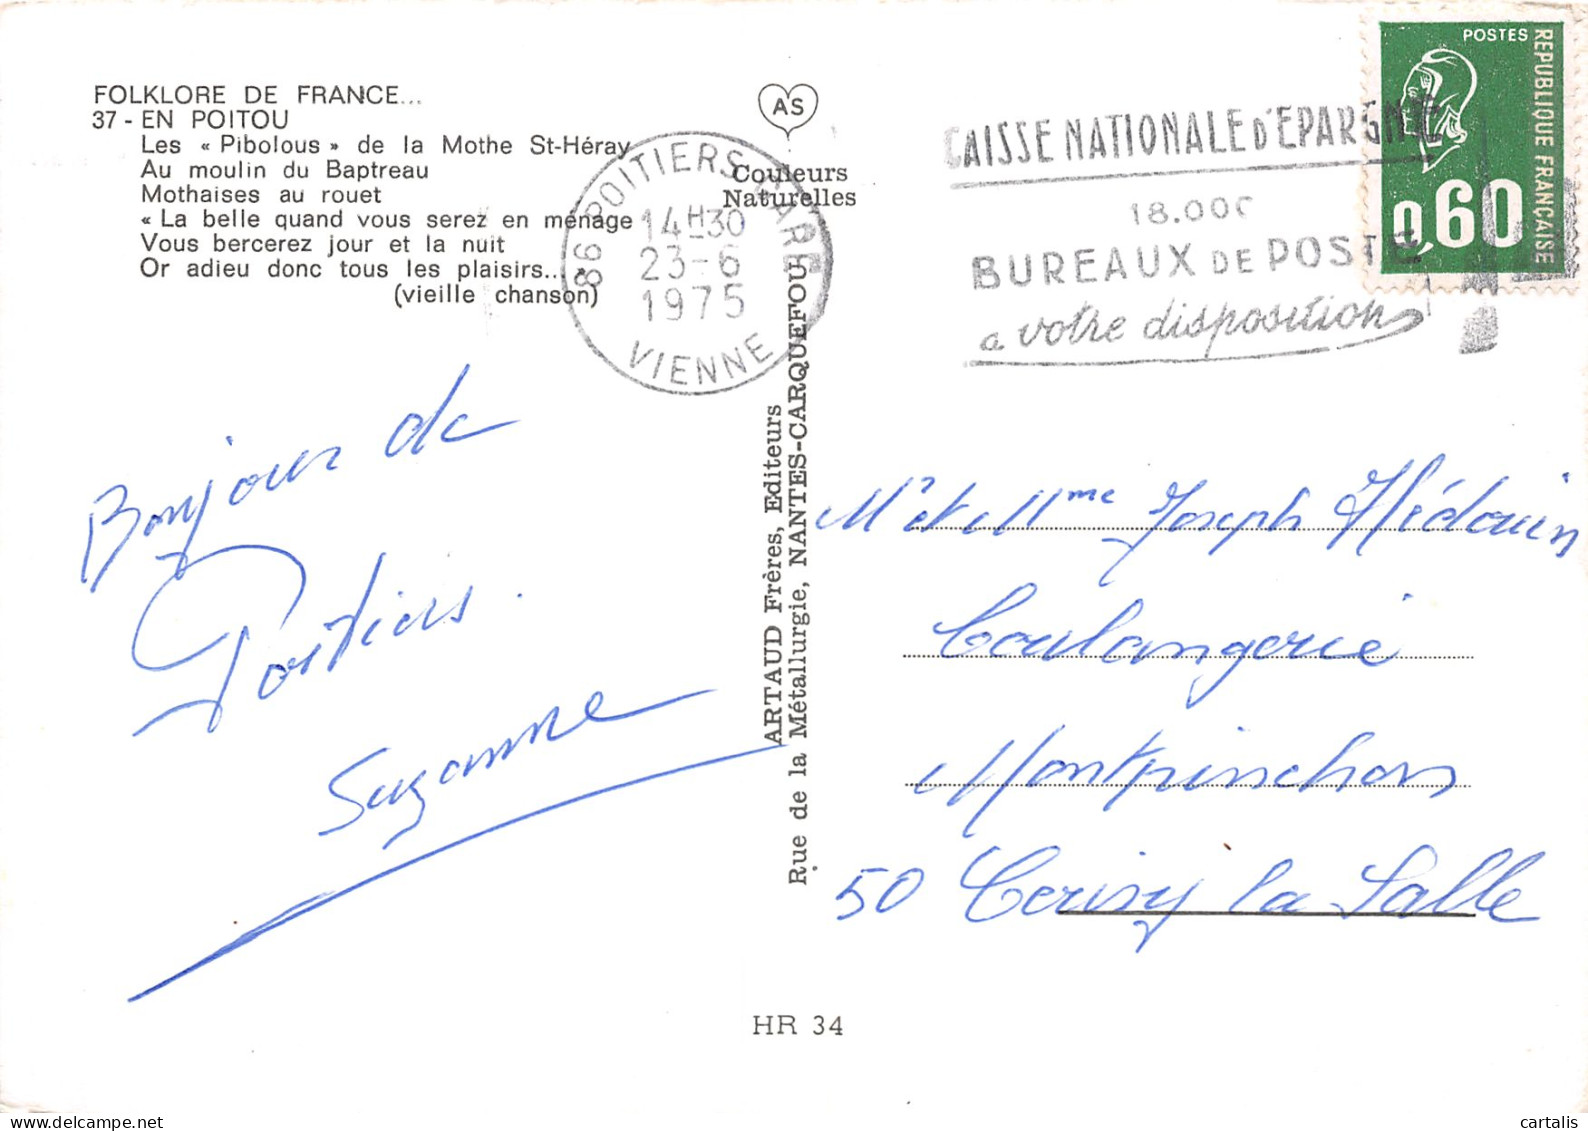 FOLKLORE DE FRANCE...
37 - EN POITOU
Les « Pibolous » de la Mothe St-Héray
Au moulin du Baptreau
Mothaises au rouet
« La belle quand vous serez en ménage
Vous bercerez jour et la nuit
Or adieu donc tous les plaisirs... »
(vieille chanson)
AS
Couleurs
Naturelles
86 POITIERS GARE
14H30
23-6
1975
VIENNE
CAISSE NATIONALE D'EPARGNE
18.000
BUREAUX DE POSTE
a votre disposition
POSTES
REPUBLIQUE FRANÇAISE
0,60
Bonjour de
Poitiers.
Suzanne
ARTAUD Frères, Editeurs
Rue de la Métallurgie, NANTES-CARQUEFOU
Mr et Mme Joseph Hédouin
Boulangerie
Montpinchon
50 Cerisy la Salle
HR 34
delcampe.net
cartalis